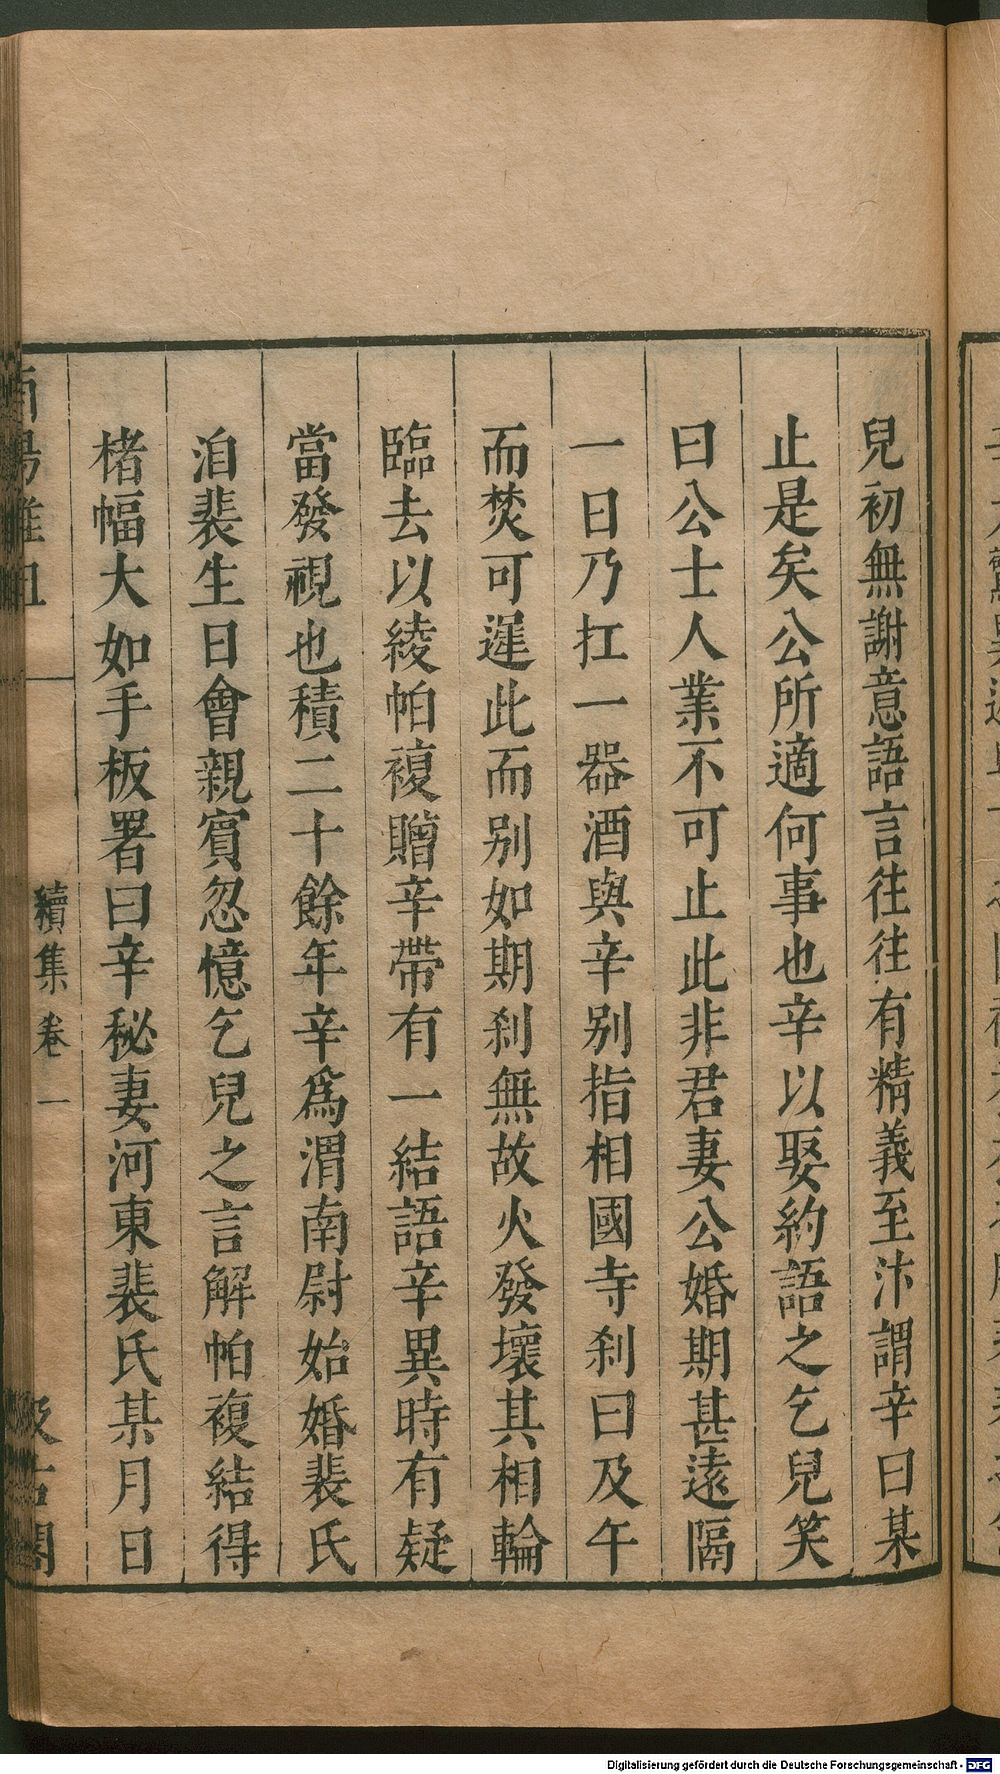 兒初無謝意語言往往有精義至汴謂辛曰某
止是矣公所適何事也辛以娶約語之乞兒笑
曰公士人業不可止此非君妻公婚期甚遠隔
一日乃扛一器酒與辛別指相國寺刹曰及午
而焚可遲此而别如期刹無故火發壞其相輪
臨去以綾帕複贈辛帶有一結語辛異時有疑
當發視也積二十餘年辛爲渭南尉始婚裴氏
洎裴生日會親賓忽憶乞兒之言解帕複結得
楮幅大如手板署曰辛秘妻河東裴氏某月日
續集卷一
Digitalisierung gefördert durch die Deutsche Forschungsgemeinschaft - DFG